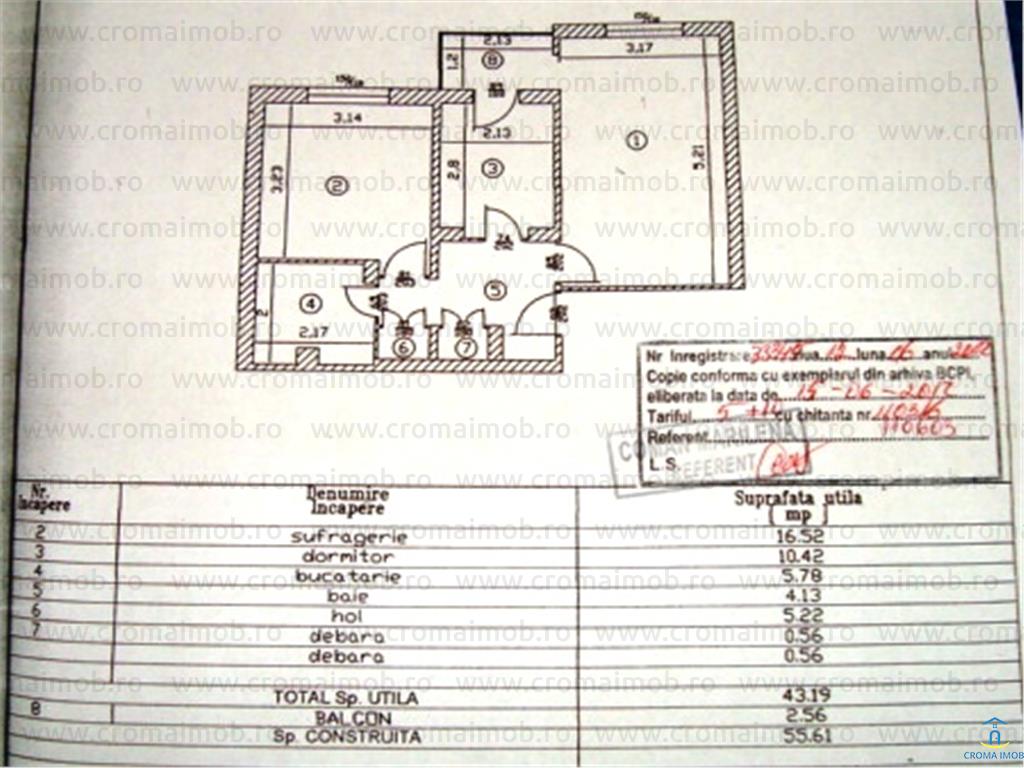 www.cromaimob.ro www.cromaimob.ro www.cromaimob.ro www.cromaimob.ro
2,13
3,17
1,2
8
3,14
2,13
1
5,21
2,8
3
3,23
2
5
4
2
2,17
6
7
Nr inregistrare ziua 12 luna 06 anul
Copie conforma cu exemplarul din arhiva BCPI,
eliberata la data de 15-06-2012
Tariful cu chitanta nr.
Referent
L. S.
COMAN MARILENA
REFERENT
Nr. incapere Denumire Incapere Suprafata utila ( mp )
2 sufragerie 16.52
3 dormitor 10.42
4 bucatarie 5.78
5 baie 4.13
6 hol 5.22
7 debara 0.56
debara 0.56
TOTAL Sp. UTILA 43.19
8 BALCON 2.56
Sp. CONSTRUITA 55.61
CROMA IMOB